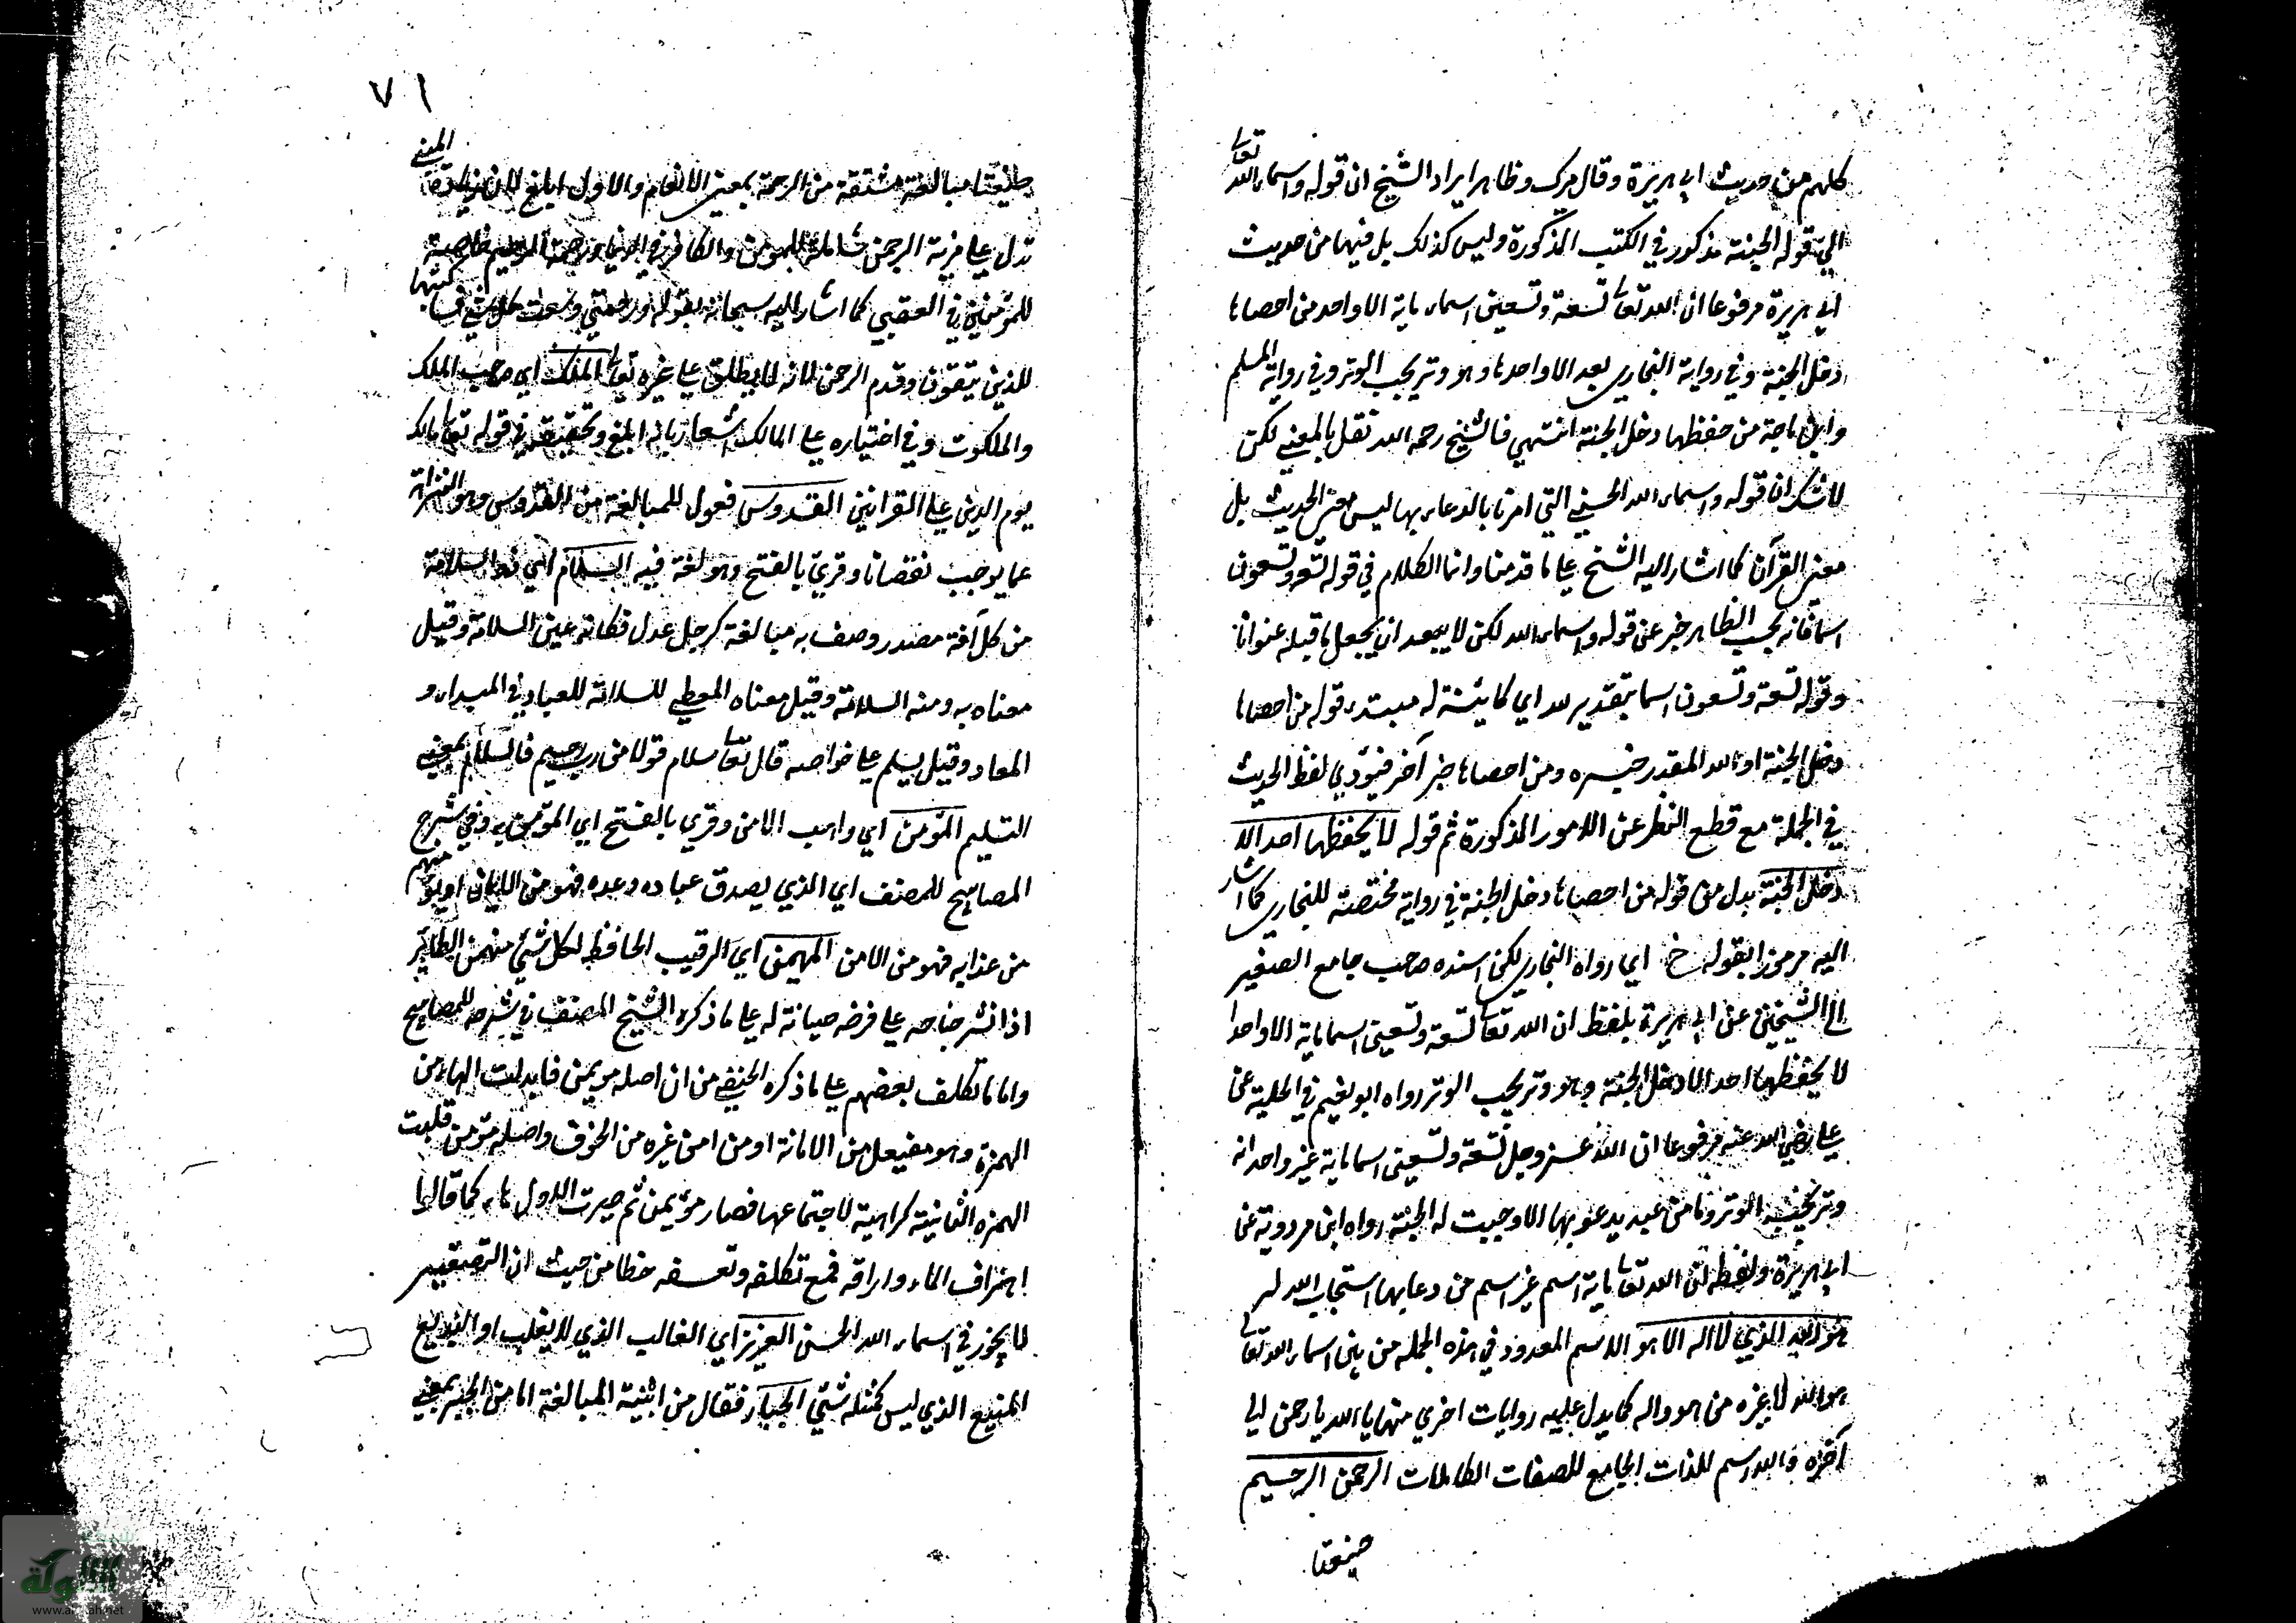 كلهم من حديث ابي هريرة وقال ميرك وظاهر ايراد الشيخ ان قوله واسماء الله تعالى
التي قوله الجنة مذكور في الكتب المذكورة وليس كذلك بل فيها من حديث
ابي هريرة مرفوعا ان لله تعالى تسعة وتسعين اسماء ماية الا واحد من احصاها
دخل الجنة وفي رواية البخاري بعد الا واحدها وهو وتر يحب الوتر وفي رواية لمسلم
وابن ماجة من حفظها دخل الجنة انتهي فالشيخ رحمه الله نقل بالمعني لكن
لا شك ان قوله واسماء الله الحسني التي امرنا بالدعاء بها ليس معنى الحديث بل
معنى القرآن كما اشار اليه الشيخ علي ما قدمنا وانما الكلام في قوله تسعة وتسعون
اسما فانه بحسب الظاهر خبر عن قوله واسماء الله لكن لا يبعد ان يجعل ما قبله عنوانا
وقوله تسعة وتسعون اسما بتقدير لله اي كاينة له مبتدء قوله من احصاها
دخل الجنة او لله المقدر خبره ومن احصاها خبر آخر فيؤدي لفظ الحديث
في الجملة مع قطع النظر عن الامور المذكورة ثم قوله لا يحفظها احد الا
دخل الجنة بدل من قوله من احصاها دخل الجنة في رواية مختصة للبخاري كما اشار
اليه مرموزا بقوله خ اي رواه البخاري لكن اسنده صاحب جامع الصغير
الي الشيخين عن ابي هريرة بلفظ ان لله تعالى تسعة وتسعين اسما ماية الا واحدا
لا يحفظها احد الا دخل الجنة وهو وتر يحب الوتر رواه ابو نعيم في الحلية عن
علي رضي الله عنه مرفوعا ان لله عز وجل تسعة وتسعين اسما ماية غير واحد انه
وتر يحب الوتر وما من عبد يدعو بها الا وجبت له الجنة رواه ابن مردوية عن
ابي هريرة ولفظه ان لله تعالى ماية اسم غير اسم من دعا بها استجاب الله له
هو الله الذي لا اله الا هو الاسم المعدود في هذه الجملة من بين اسماء الله تعالى
هو الله لا غيره من هو واله كما يدل عليه روايات اخري منها يا الله يا رحمن الي
آخره والله اسم للذات الجامع للصفات الكاملات الرحمن الرحيم
صيغتا
٧١
صيغتا مبالغة مشتقة من الرحمة بمعنى الانعام والاول ابلغ لان زيادة المبني
تدل علي مزية الرحمن شاملة للمؤمن والكافر في الدنيا ورحمة الرحيم خاصة
للمؤمنين في العقبي كما اشار اليه سبحانه بقوله ورحمتي وسعت كل شئ فساكتبها
للذين يتقون وقدم الرحمن لانه لا يطلق علي غيره تعالى الملك اي صاحب الملك
والملكوت وفي اختياره علي المالك اشعار بانه ابلغ وتحقيقه في قوله تعالى مالك
يوم الدين علي القرائتين القدوس فعول للمبالغة من القدوس وهو النزاهة
عما يوجب نقصانا وقرئ بالفتح وهو لغة فيه السلام اي ذو السلامة
من كل آفة مصدر وصف به مبالغة كرجل عدل فكانه عين السلامة وقيل
معناه به ومنه السلامة وقيل معناه المعطي للسلامة للعباد في المبداء و
المعاد وقيل يسلم علي خواصه قال تعالى سلام قولا من رب رحيم فالسلام بمعني
التسليم المؤمن اي واهب الامن وقري بالفتح اي المؤمن به وفي شرح
المصابيح للمصنف اي الذي يصدق عباده وعده فهو من الايمان او يؤمنهم
من عذابه فهو من الامن المهيمن اي الرقيب الحافظ لكل شئ من هيمن الطاير
اذا نشر جناحه علي فرخه صيانة له علي ما ذكره الشيخ المصنف في شرحه للمصابيح
واما ما تكلف بعضهم علي ما ذكره الحنفي من ان اصله مويمن فابدلت الهاء من
الهمزة وهو مفيعل من الامانة او من امن غيره من الخوف واصله مؤمن قلبت
الهمزه الثانية كراهية لاجتماعها فصار مؤيمن ثم صيرت الاول هاء كما قالوا
اهراق الماء واراقه فمع تكلفه وتعسفه خطا من حيث ان التصغير
لا يجوز في اسماء الله الحسنى العزيز اي الغالب الذي لا يغلب او البديع
المنيع الذي ليس كمثله شئ الجبار فقال من ابنية المبالغة اما من الجبر بمعني